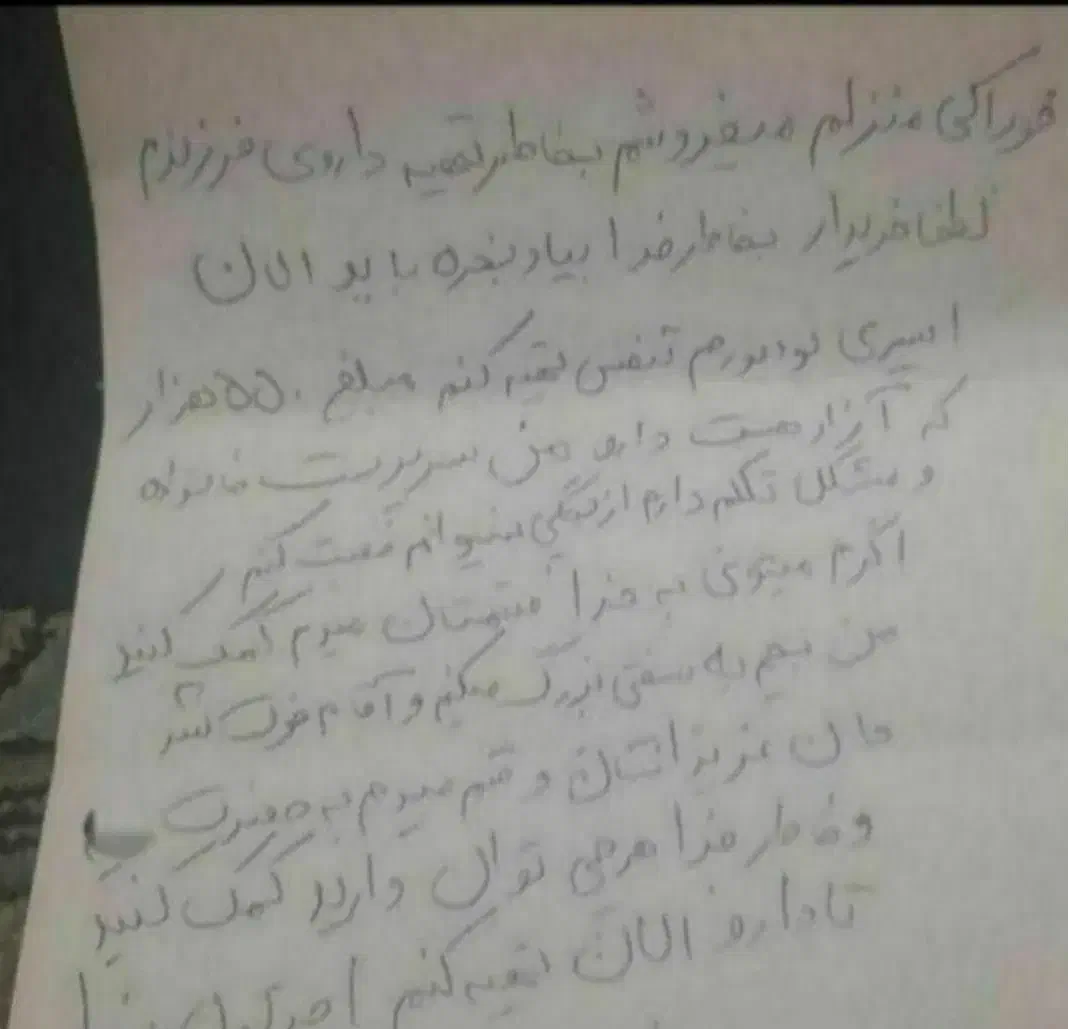 خوراکی منزلم میفروشم بخاطر تهیه داروی فرزندم
لطفا خریدار بخاطر خدا بیاد بخره باید الان
اسپری بودبورم تنفس تهیه کنم مبلغ ۵۵۰ هزار
که آزاد هست دارو من سرپرست خانواده
و مشکل تکلم دارم از نمیتوانم صحبت کنم
اگرم میتونی به خدا قسمتان میدم کمک کنید
من بچم به سختی بزرگ میکنم و آقام فوت شد
جان عزیزانتان و قسم میدم به حضرت
وخاطر خدا هرچی توان دارید کمک کنید
تا دارو الان تهیه کنم اجرکم خدا